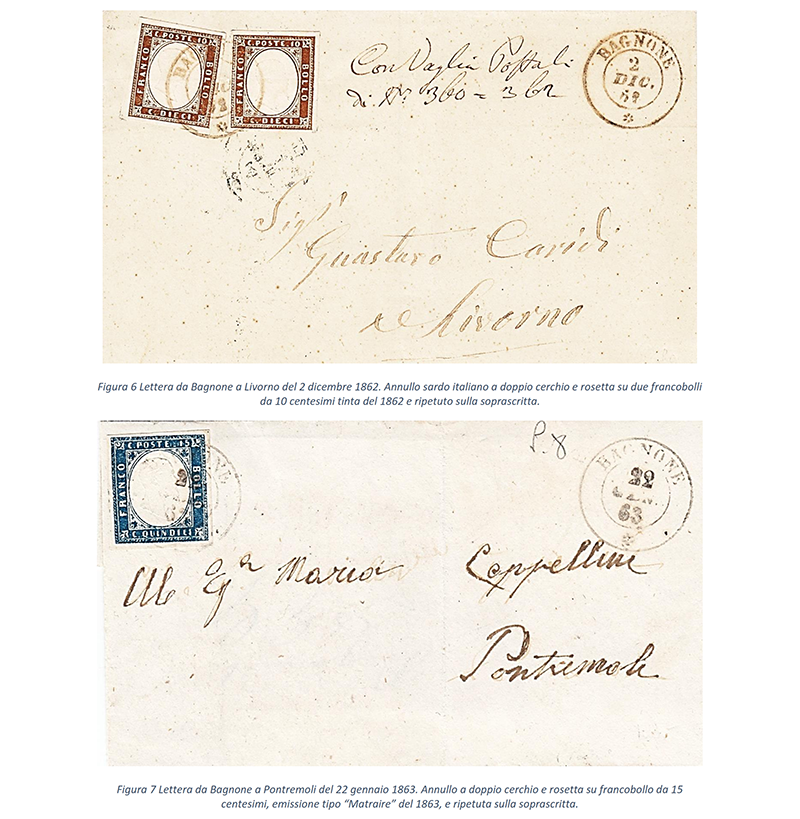 C. POSTE 10
FRANCO
BOLLO
C. DIECI
C. POSTE 10
FRANCO
BOLLO
C. DIECI
Con Vaglia Postali
di N.
BAGNONE
2
DIC.
62
Sig.
Guastavo Caridi
Livorno
Figura 6 Lettera da Bagnone a Livorno del 2 dicembre 1862. Annullo sardo italiano a doppio cerchio e rosetta su due francobolli
da 10 centesimi tinta del 1862 e ripetuto sulla soprascritta.
C. POSTE 15
FRANCO
BOLLO
C. QUINDICI
P. 8
BAGNONE
22
GEN.
63
Maria Cappellini
Pontremoli
Figura 7 Lettera da Bagnone a Pontremoli del 22 gennaio 1863. Annullo a doppio cerchio e rosetta su francobollo da 15
centesimi, emissione tipo “Matraire” del 1863, e ripetuta sulla soprascritta.